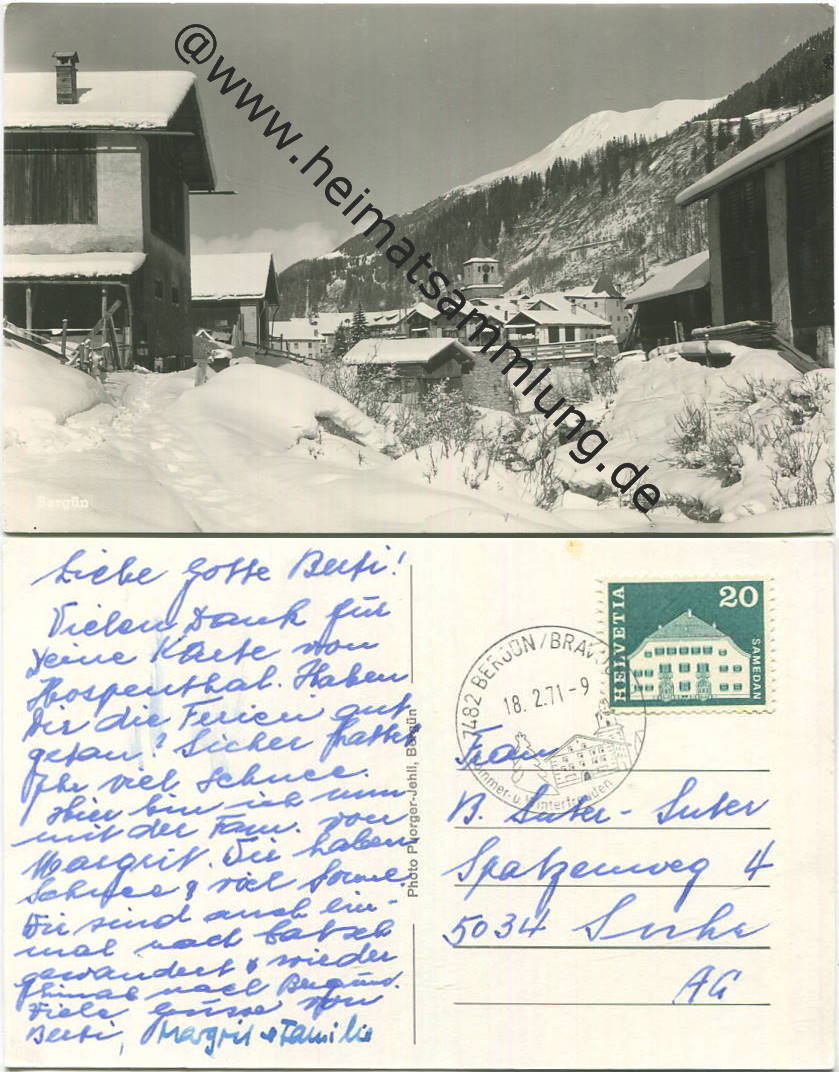 @www.heimatsammlung.de
Bergün
Liebe Gotte Berti!
Vielen Dank für
Deine Karte von
Hospenthal. Haben
Dir die Ferien gut
getan? Sicher hattet
Ihr viel Schnee.
Hier bin ich nun
mit der Fam. von
Margrit. Wir haben
Schnee & viel Sonne.
Wir sind auch ein-
mal nach Latsch
gewandert & wieder
hinab nach Bergün.
Viele Grüsse von
Berti, Margrit + Familie
Photo Puorger-Jehli, Bergün
HELVETIA
20
SAMEDAN
7482 BERGÜN/BRAV
18.2.71-9
Sommer- u. Winterfreuden
Frau
B. Suter-Suter
Spatzenweg 4
5034 Suhr
AG